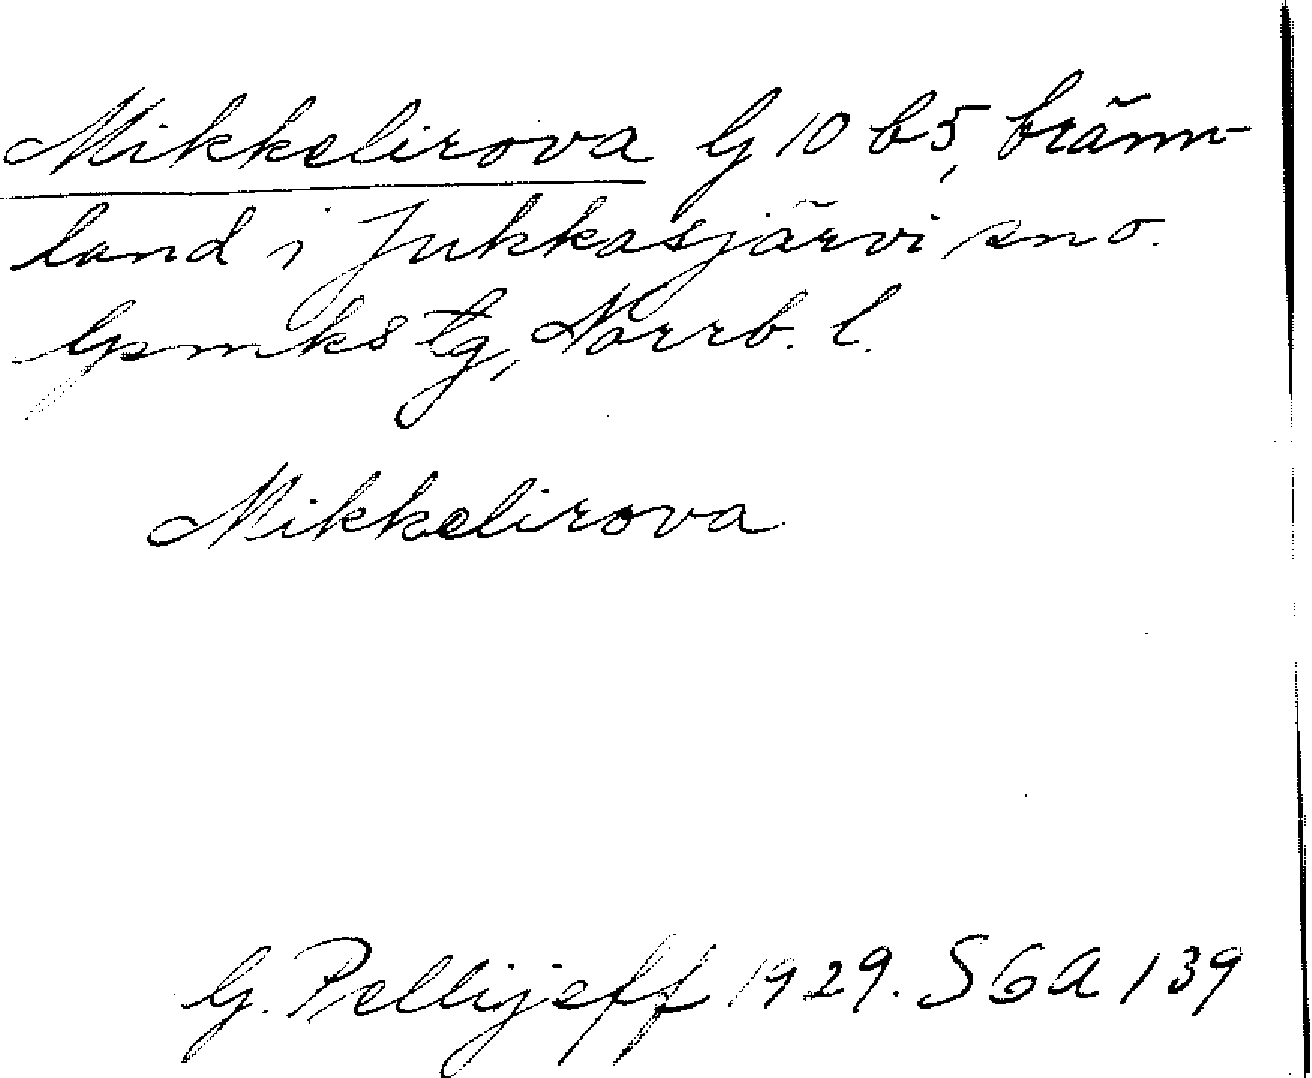 Mikkelirova G 10 b5, bränn-
land i Jukkasjärvi sn o.
Gpmks tg, Norrb. l.
Mikkelirova
G. Pellijeff 1929. SGA 139